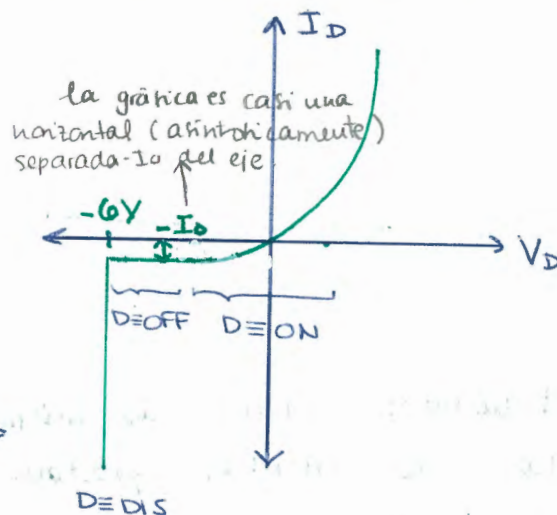 I_D
la gráfica es casi una
horizontal (asintoticamente)
separada -I₀ del eje
-6V
-I₀
V_D
D≡OFF
D≡ON
D≡DIS